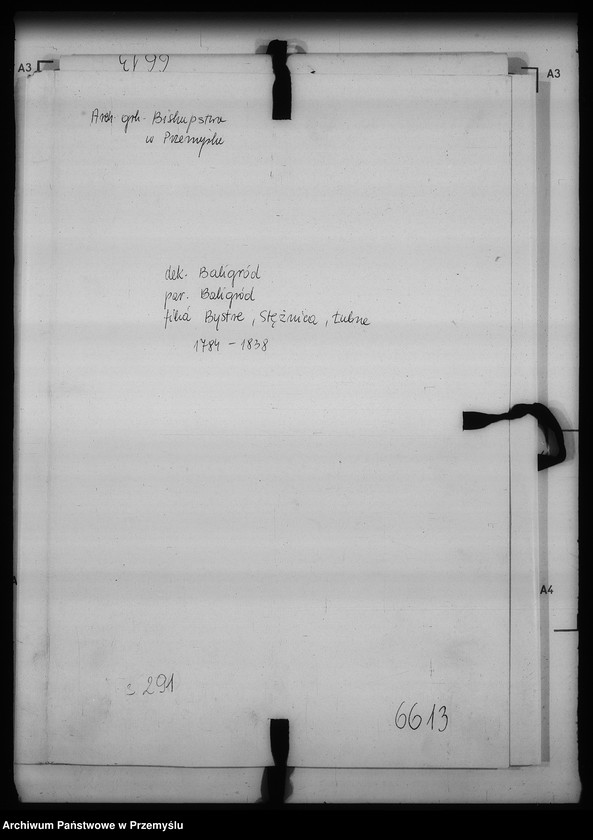 6613
A3
A3
Arch. grk. Biskupstwa
w Przemyślu
dek. Baligród
par. Baligród
filia Bystre, Stężnica, Łubne
1784 - 1838
A4
s 291
6613
Archiwum Państwowe w Przemyślu